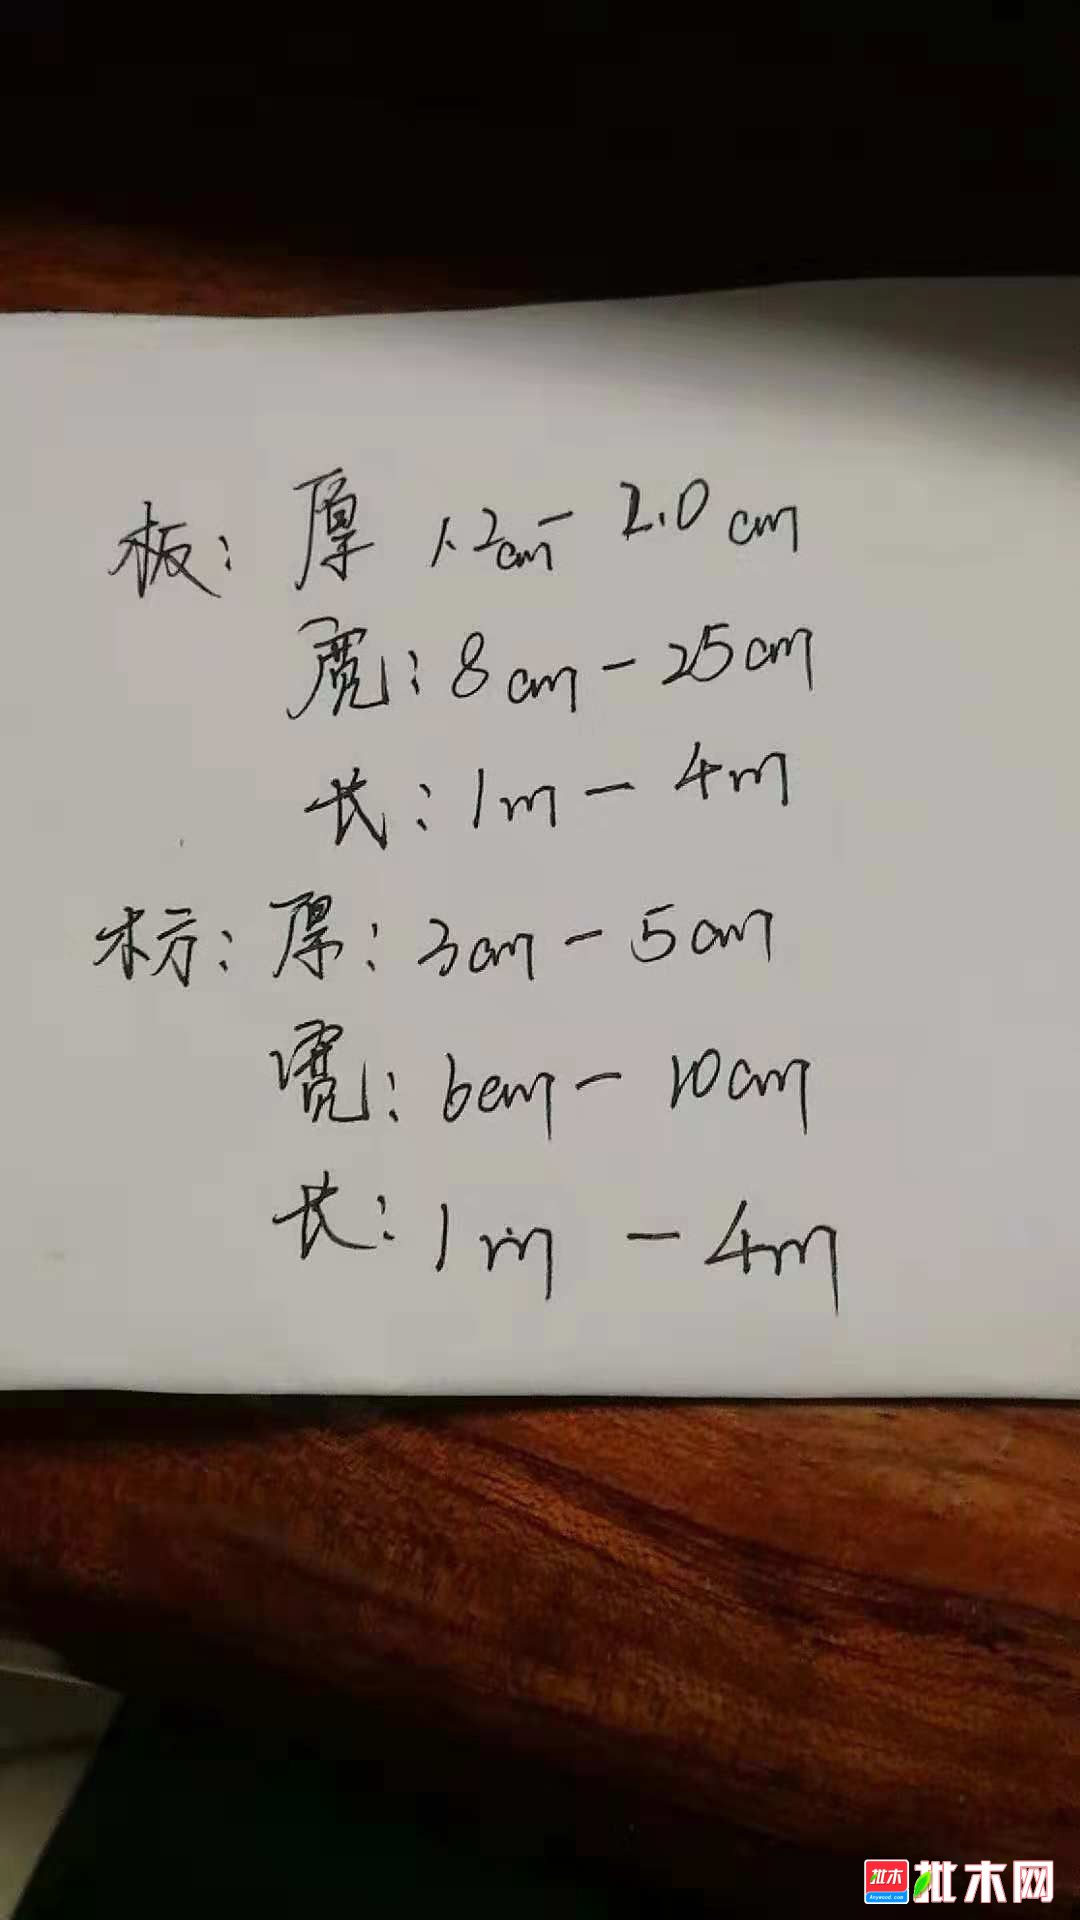 板：厚 1.2cm - 2.0cm
宽：8cm - 25cm
长：1m - 4m
木方：厚：3cm - 5cm
宽：6cm - 10cm
长：1m - 4m
批木 批木网
Anywood.com